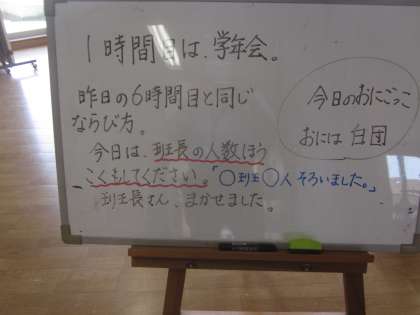 1時間目は、学年会。
昨日の6時間目と同じ
ならび方。
今日は、班長の人数ほう
こくもしてください。「〇班〇人 そろいました。」
班長さん、まかせました。
今日のおにごっこ
おには 白団